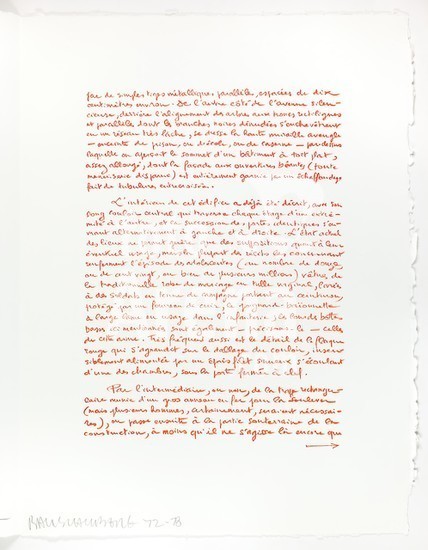 par de simples tiges métalliques parallèles, espacées de dix
centimètres environ. De l'autre côté de l'avenue silen-
cieuse, derrière l'alignement des arbres aux troncs rectilignes
et parallèles dont les branches noires dénudées s'enchevêtrent
en un réseau très lâche, se dresse la haute muraille aveugle
— enceinte de prison, ou d'école, ou de caserne — par-dessus
laquelle on aperçoit le sommet d'un bâtiment à toit plat
assez allongé, dont la façade aux ouvertures béantes (toute
menuiserie disparue) est entièrement garnie par un échafaudage
fait de tubulures entrecroisées.
L'intérieur de cet édifice a déjà été décrit, avec son
long couloir central qui traverse chaque étage d'une extré-
mité à l'autre, et la succession des portes identiques s'ou-
vrant alternativement à gauche et à droite. L'état actuel
des lieux ne permet guère que des suppositions quant à leur
éventuel usage, mais la plupart des récits les concernant
supposent l'épisode des adolescentes (au nombre de douze,
ou de cent vingt, ou bien de plusieurs milliers) vêtues de
la traditionnelle robe de mariage en tulle virginal, livrées
à des soldats en tenue de campagne portant au ceinturon,
protégé par un fourreau de cuir, le poignard réglementaire
à large lame en usage dans l'infanterie; les lourdes bottes
basses sont également — précisons-le — celles
de cette arme. Très fréquent aussi est le détail de la flaque
rouge qui s'agrandit sur le dallage du couloir, insen-
siblement alimentée par un épais filet sinueux s'écoulant
d'une des chambres, sous la porte fermée à clef.
Par l'intermédiaire, ou non, de la trappe rectangu-
laire munie d'un gros anneau en fer pour la soulever
(mais plusieurs hommes, certainement, seraient nécessai-
res), on passe ensuite à la partie souterraine de la
construction, à moins qu'il ne s'agisse là encore que